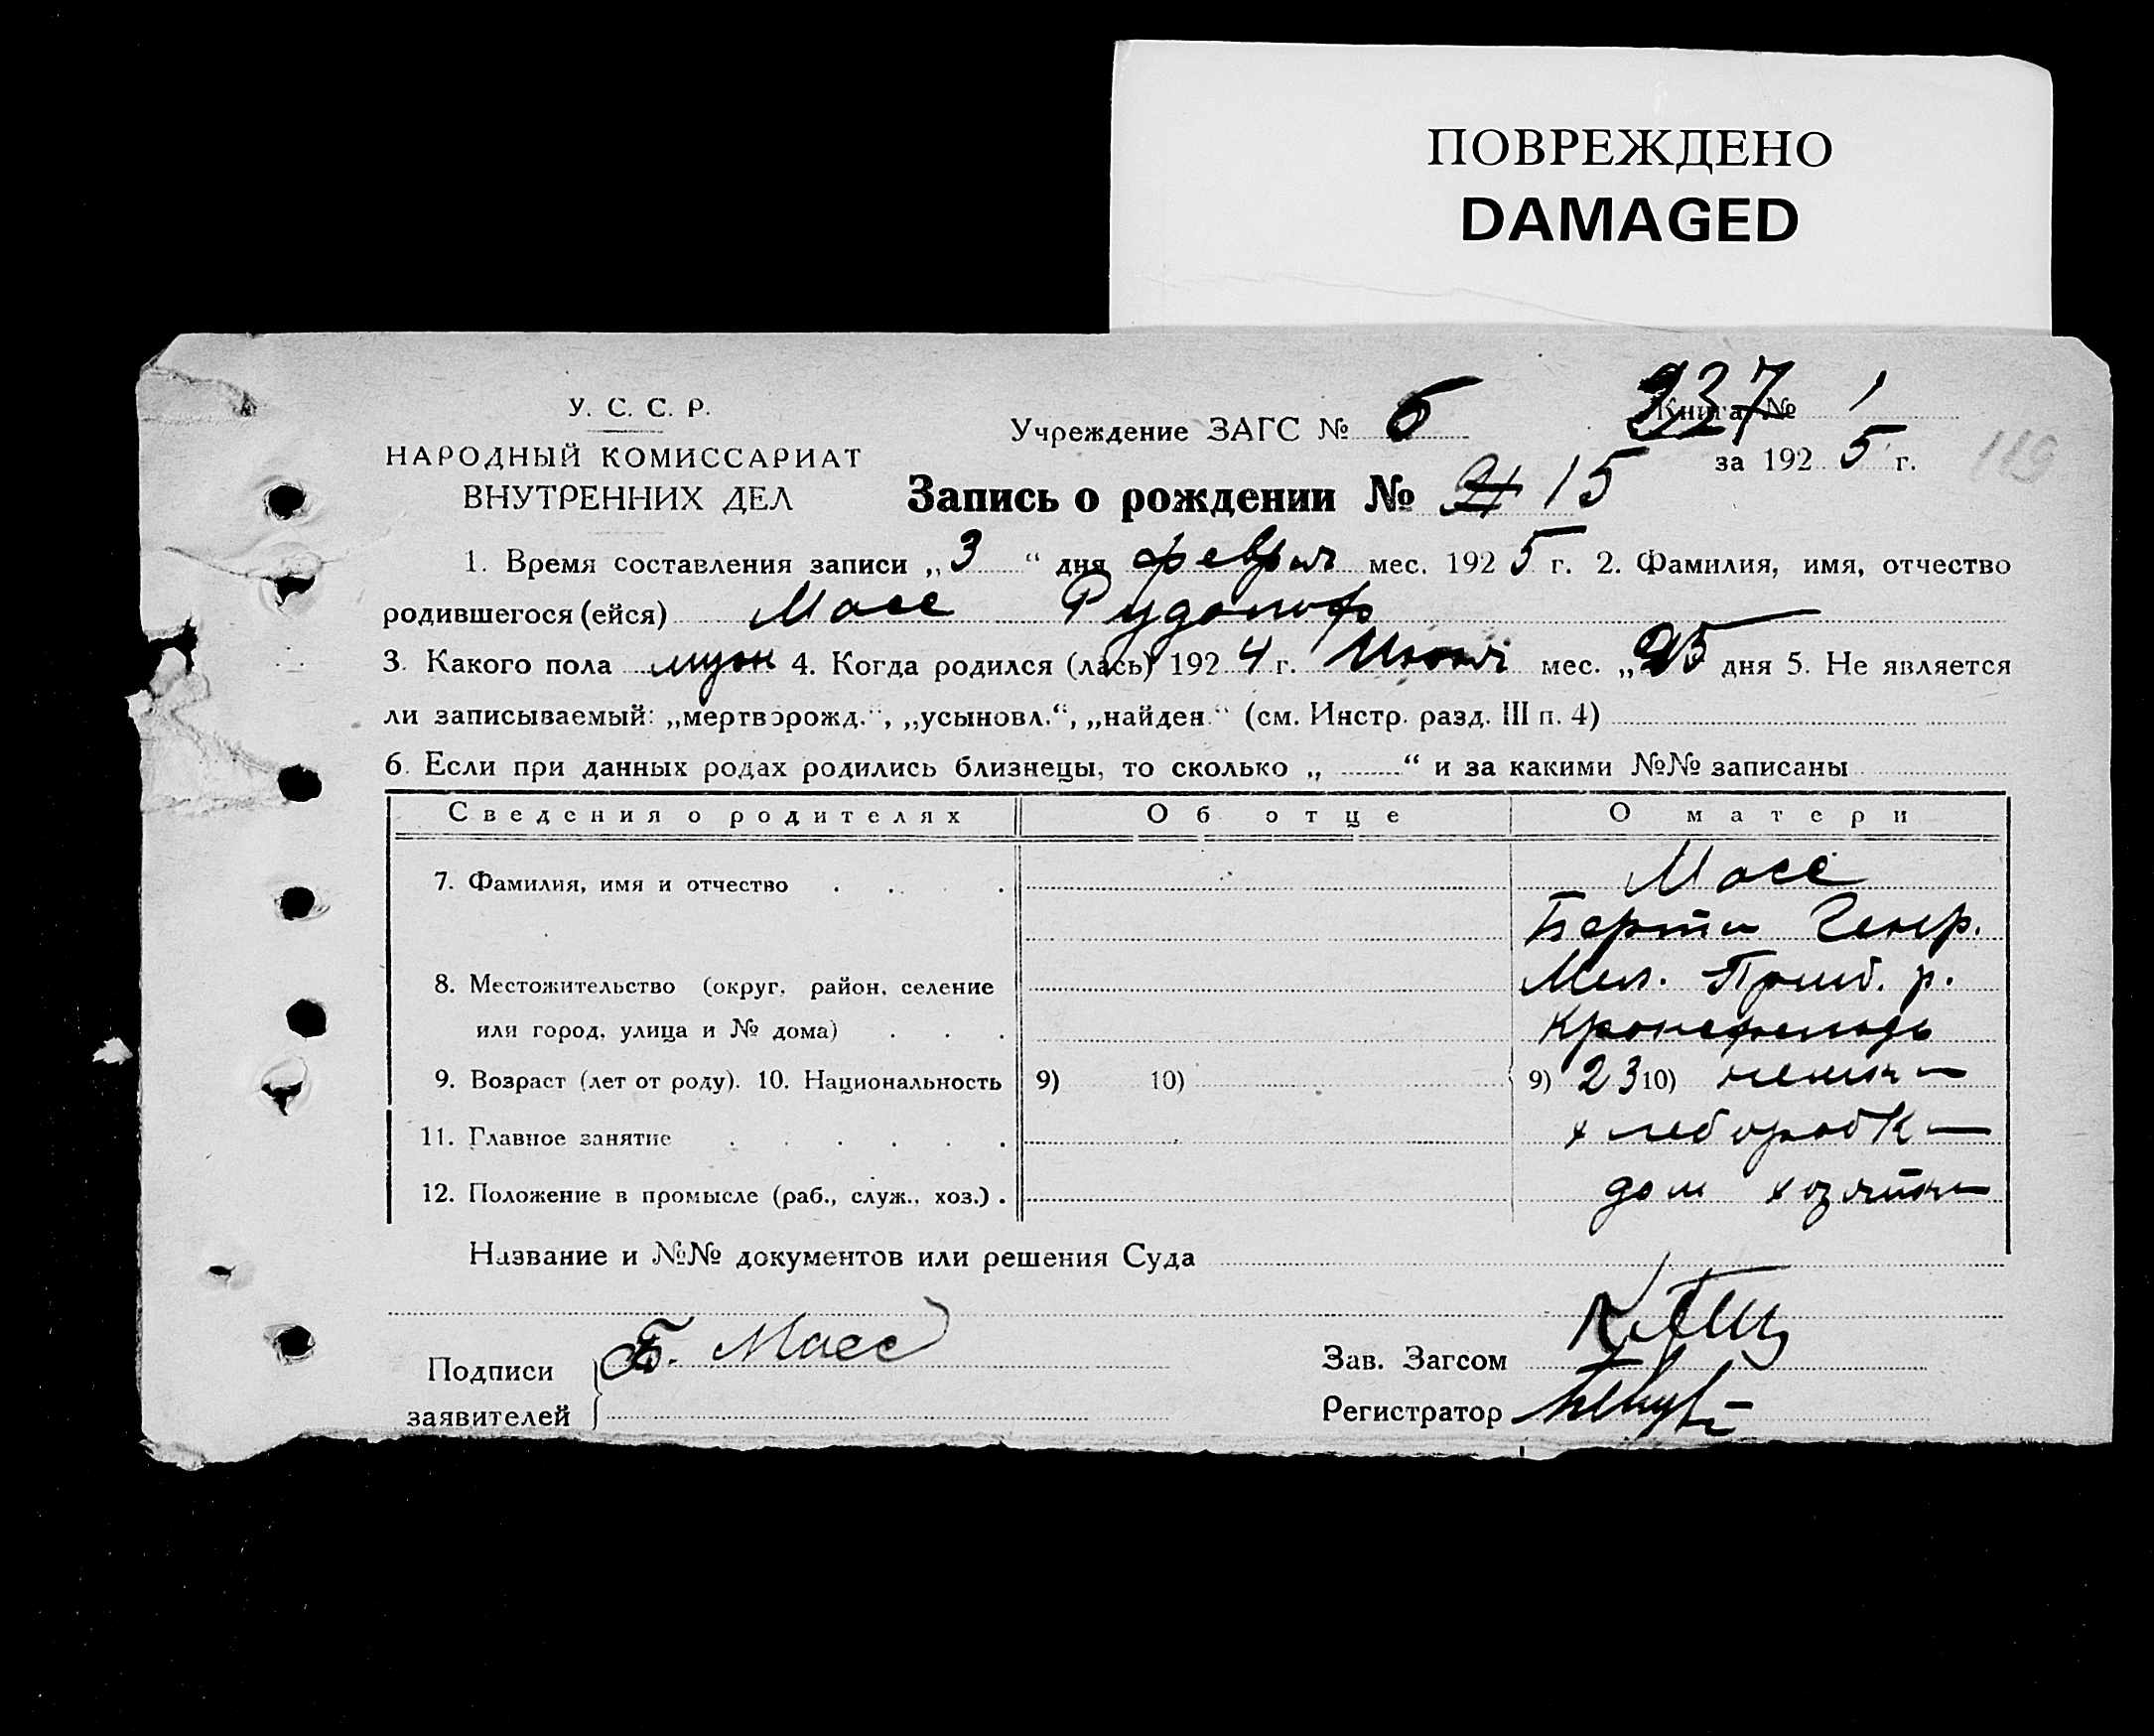 ПОВРЕЖДЕНО
DAMAGED
У. С. С. Р.
НАРОДНЫЙ КОМИССАРИАТ
ВНУТРЕННИХ ДЕЛ
Учреждение ЗАГС № 6
237
Книга № 1
за 1925 г.
119
Запись о рождении № 21 15
1. Время составления записи „3“ дня феврля мес. 1925 г. 2. Фамилия, имя, отчество
родившегося (ейся) Масс Рудольф
3. Какого пола муж 4. Когда родился (лась) 1924 г. мес. „25 дня 5. Не является
ли записываемый: „мертворожд.“, „усыновл.“, „найден.“ (см. Инстр. разд. III п. 4)
6. Если при данных родах родились близнецы, то сколько „ “ и за какими №№ записаны
Сведения о родителях Об отце О матери
7. Фамилия, имя и отчество Масс
Берта Генр.
8. Местожительство (округ, район, селение Мел. Приш. р.
или город, улица и № дома) Кронсфельдь
9. Возраст (лет от роду). 10. Национальность 9) 10) 9) 23 10) немка
11. Главное занятие хлеборобка
12. Положение в промысле (раб., служ., хоз.) дом хозяйка
Название и №№ документов или решения Суда
Подписи заявителей Б. Масс
Зав. Загсом
Регистратор